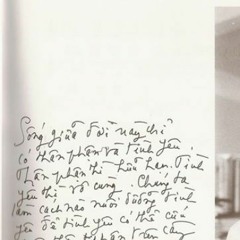 Sống giữa đời này chỉ
có thân phận và tình yêu.
Thân phận thì hữu hạn. Tình
yêu thì vô cùng. Chúng ta
làm cách nào nuôi dưỡng tình
yêu để tình yêu có thể cứu
thân phận trên cây